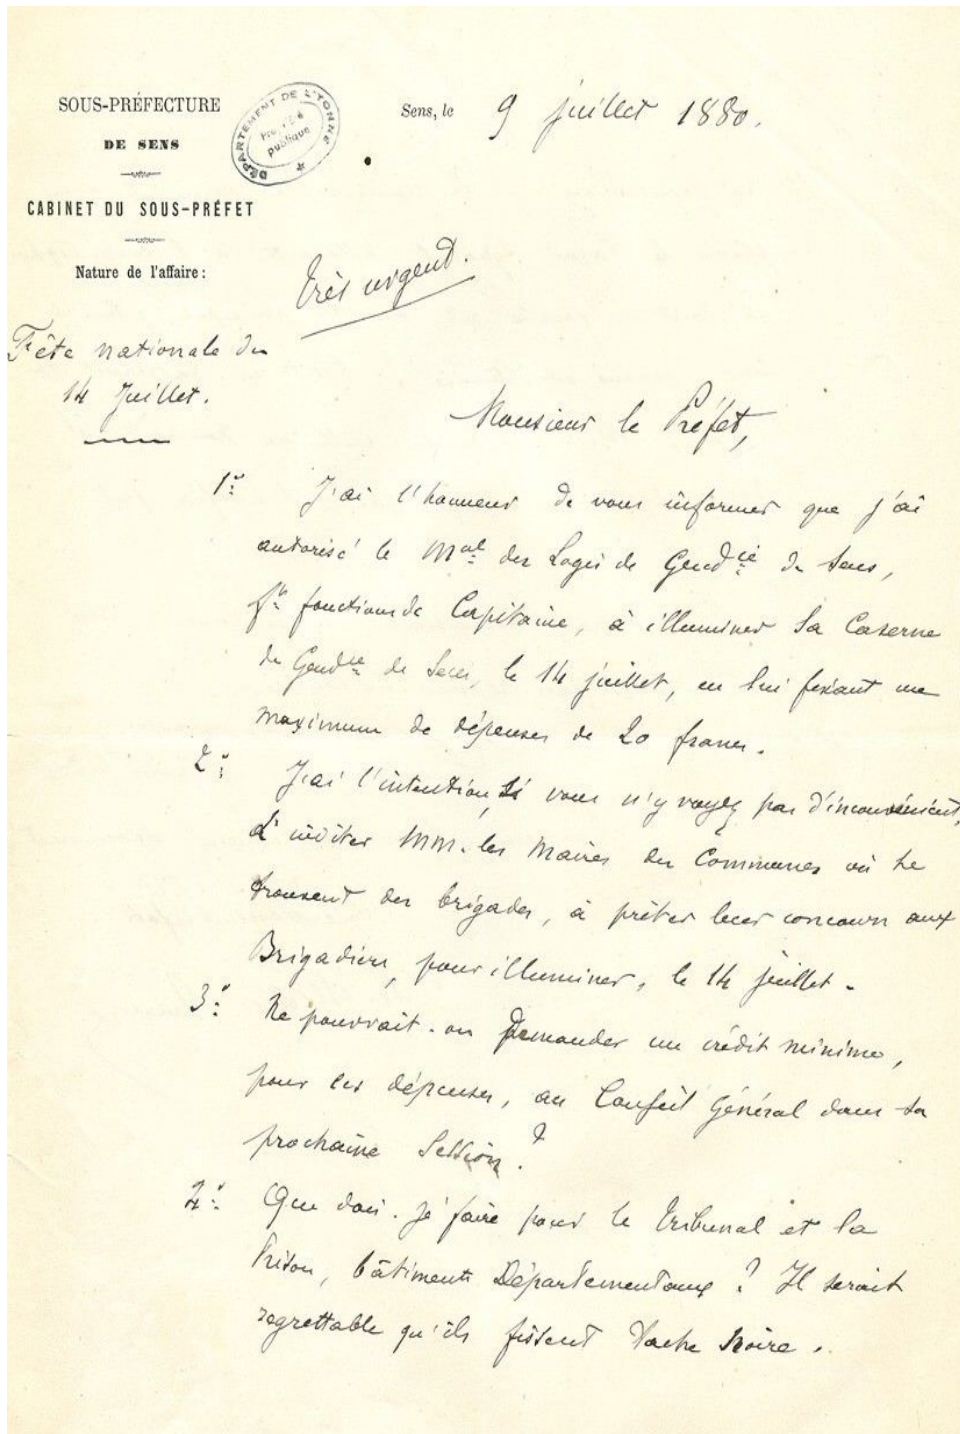 SOUS-PRÉFECTURE
DE SENS
CABINET DU SOUS-PRÉFET
Nature de l'affaire :
Fête nationale du
14 Juillet.
DÉPARTEMENT DE L'YONNE
Propriété
publique
Sens, le 9 juillet 1880.
Très urgent.
Monsieur le Préfet,
1° J'ai l'honneur de vous informer que j'ai
autorisé le Mal des Logis de Gendie de Sens,
fn fonctions de Capitaine, à illuminer sa Caserne
de Gendie de Sens, le 14 juillet, en lui fixant un
maximum de dépenses de 20 francs.
2° J'ai l'intention, si vous n'y voyez pas d'inconvénient,
d'inviter MM. les Maires des Communes où se
trouvent des brigades, à prêter leur concours aux
Brigadiers, pour illuminer, le 14 juillet.
3° Ne pourrait-on demander un crédit minime,
pour ces dépenses, au Conseil Général dans sa
prochaine Session ?
4° Que dois-je faire pour le Tribunal et la
Prison, bâtiments Départementaux ? Il serait
regrettable qu'ils fissent tache noire.